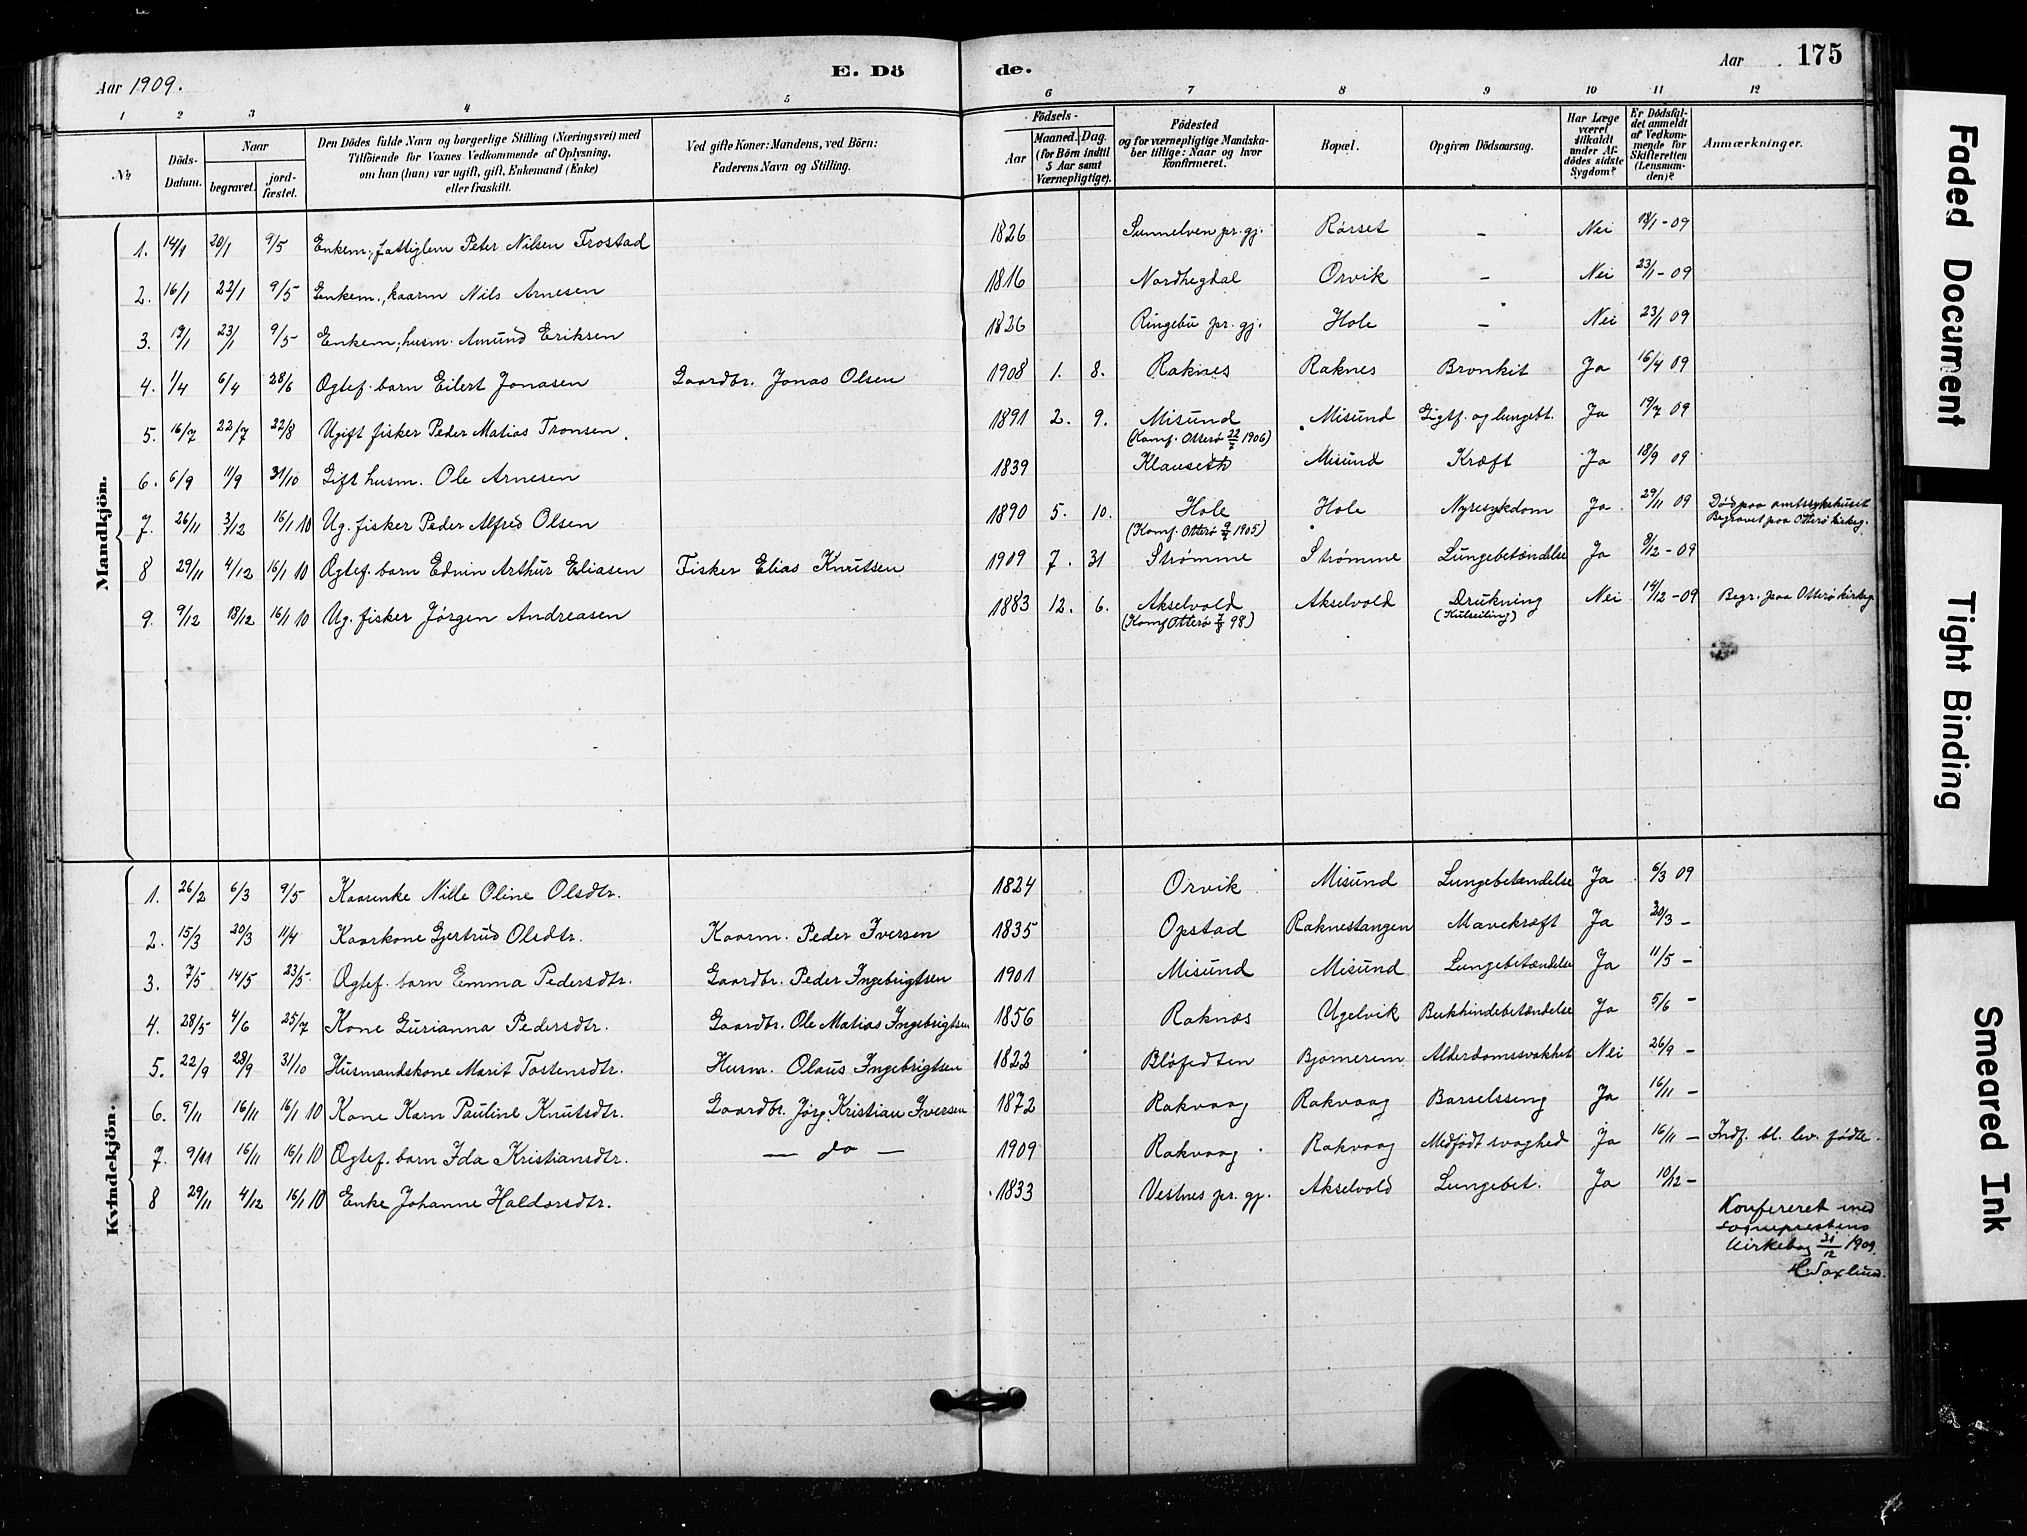 Aar 1909.
E. Dö
de.
Aar
175
1 2 3 4 5 6 7 8 9 10 11 12
№
Döds-Datum.
Naar
begravet.
jord-fæstet.
Den Dödes fulde Navn og borgerlige Stilling (Næringsvei) med
Tilföiende for Voxnes Vedkommende af Oplysning,
om han (hun) var ugift, gift, Enkemand (Enke)
eller fraskilt.
Ved gifte Koner: Mandens, ved Börn:
Faderens Navn og Stilling.
Födsels-
Aar
Maaned. Dag.
(for Börn indtil
5 Aar samt
Værnepligtige).
Födested
og for værnepligtige Mandska-
ber tillige: Naar og hvor
konfirmeret.
Bopæl.
Opgiven Dödsaarsag.
Har Læge
været
tilkaldt
under Af-
dödes sidste
Sygdom?
Er Dödsfal-
det anmeldt
af Vedkom-
mende for
Skifteretten
(Lensman-
den)?
Anmærkninger.
Mandkjön.
1. 14/1 20/1 9/5 Enkem, fattiglem Peter Nilsen Frostad 1826 Sunnelven pr. gj. Rørset – Nei 18/1 - 09
2. 16/1 22/1 9/5 Enkem., kaarm Nils Arnesen 1816 Nordhegdal Orvik – Nei 23/1 - 09
3. 19/1 23/1 9/5 Enkem, husm. Amund Eriksen 1826 Ringebu pr. gj. Hole – Nei 23/1 09
4. 1/4 6/4 28/6 Ægtef. barn Eilert Jonasen Gaardbr. Jonas Olsen 1908 1. 8. Raknes Raknes Bronkit Ja 16/4 09
5. 16/7 22/7 22/8 Ugift fisker Peder Matias Tronsen. 1891 2. 9. Misund Misund Gigtf. og lungebt. Ja 19/7 09
(Komf. Otterø 22/7 1906)
6. 6/9 11/9 31/10 Gift husm. Ole Arnesen 1839 Klauseth Misund Kræft Ja 18/9 09
7. 26/11 3/12 16/1 10 Ug. fisker Peder Alfred Olsen 1890 5. 10. Hole Hole Nyresykdom Ja 29/11 09 Død paa amtssykehuset
(Komf. Otterø 9/7 1905) Begravet paa Otterø kirkeg.
8 29/11 4/12 16/1 10 Ægtef. barn Edvin Arthur Eliasen Fisker Elias Knutsen 1909 7. 31 Strømme Strømme Lungebetændelse Ja 9/12 - 09
9. 9/12 18/12 16/1 10 Ug. fisker Jørgen Andreasen 1883 12. 6. Akselvold Akselvold Drukning Nei 14/12 - 09 Begr. paa Otterø kirkeg
(Komf Otterø 98) (Kulseiling)
Kvindekjön.
1. 26/2 6/3 9/5 Kaarenke Nille Oline Olsdtr. 1824 Orvik Misund Lungebetændelse Ja 6/3 09
2. 15/3 20/3 11/4 Kaarkone Gjertrud Olsdtr. Kaarm. Peder Iversen 1835 Opstad Raknestangen Mavekræft Ja 20/3 –
3. 7/5 14/5 23/5 Ægtef. barn Emma Pedersdtr. Gaardbr. Peder Ingebrigtsen 1901 Misund Misund Lungebetændelse Ja 11/5 –
4. 28/5 4/6 25/7 Kone Gurianna Pedersdtr. Gaardbr. Ole Matias Ingebrigtsen 1856 Raknæs Ugelvik Bukhindebetændelse Ja 5/6 –
5. 22/9 28/9 31/10 Husmandskone Marit Tostensdtr. Husm. Olaus Ingebrigtsen 1822 Bløfedten Bjørnerem Alderdomssvakhet Nei 26/9 –
6. 9/11 16/11 16/1 10 Kone Karn Pauline Knutsdtr. Gaardbr. Jørg. Kristian Iversen 1872 Rakvaag Rakvaag Barselsseng Ja 16/11 –
7. 9/11 16/11 16/1 10 Ægtef. barn Ida Kristiansdtr. — do — 1909 Rakvaag Rakvaag Medfødt svaghed Ja 16/11 – Indf. bl. lev. fødte.
8 29/11 4/12 16/1 10 Enke Johanne Haldorsdtr. 1833 Vestnes pr. gj. Akselvold Lungebet. Ja 10/12 –
Konfereret med
sogneprestens
Kirkebog 31/12 1909.
Faded Document
Tight Binding
Smeared Ink